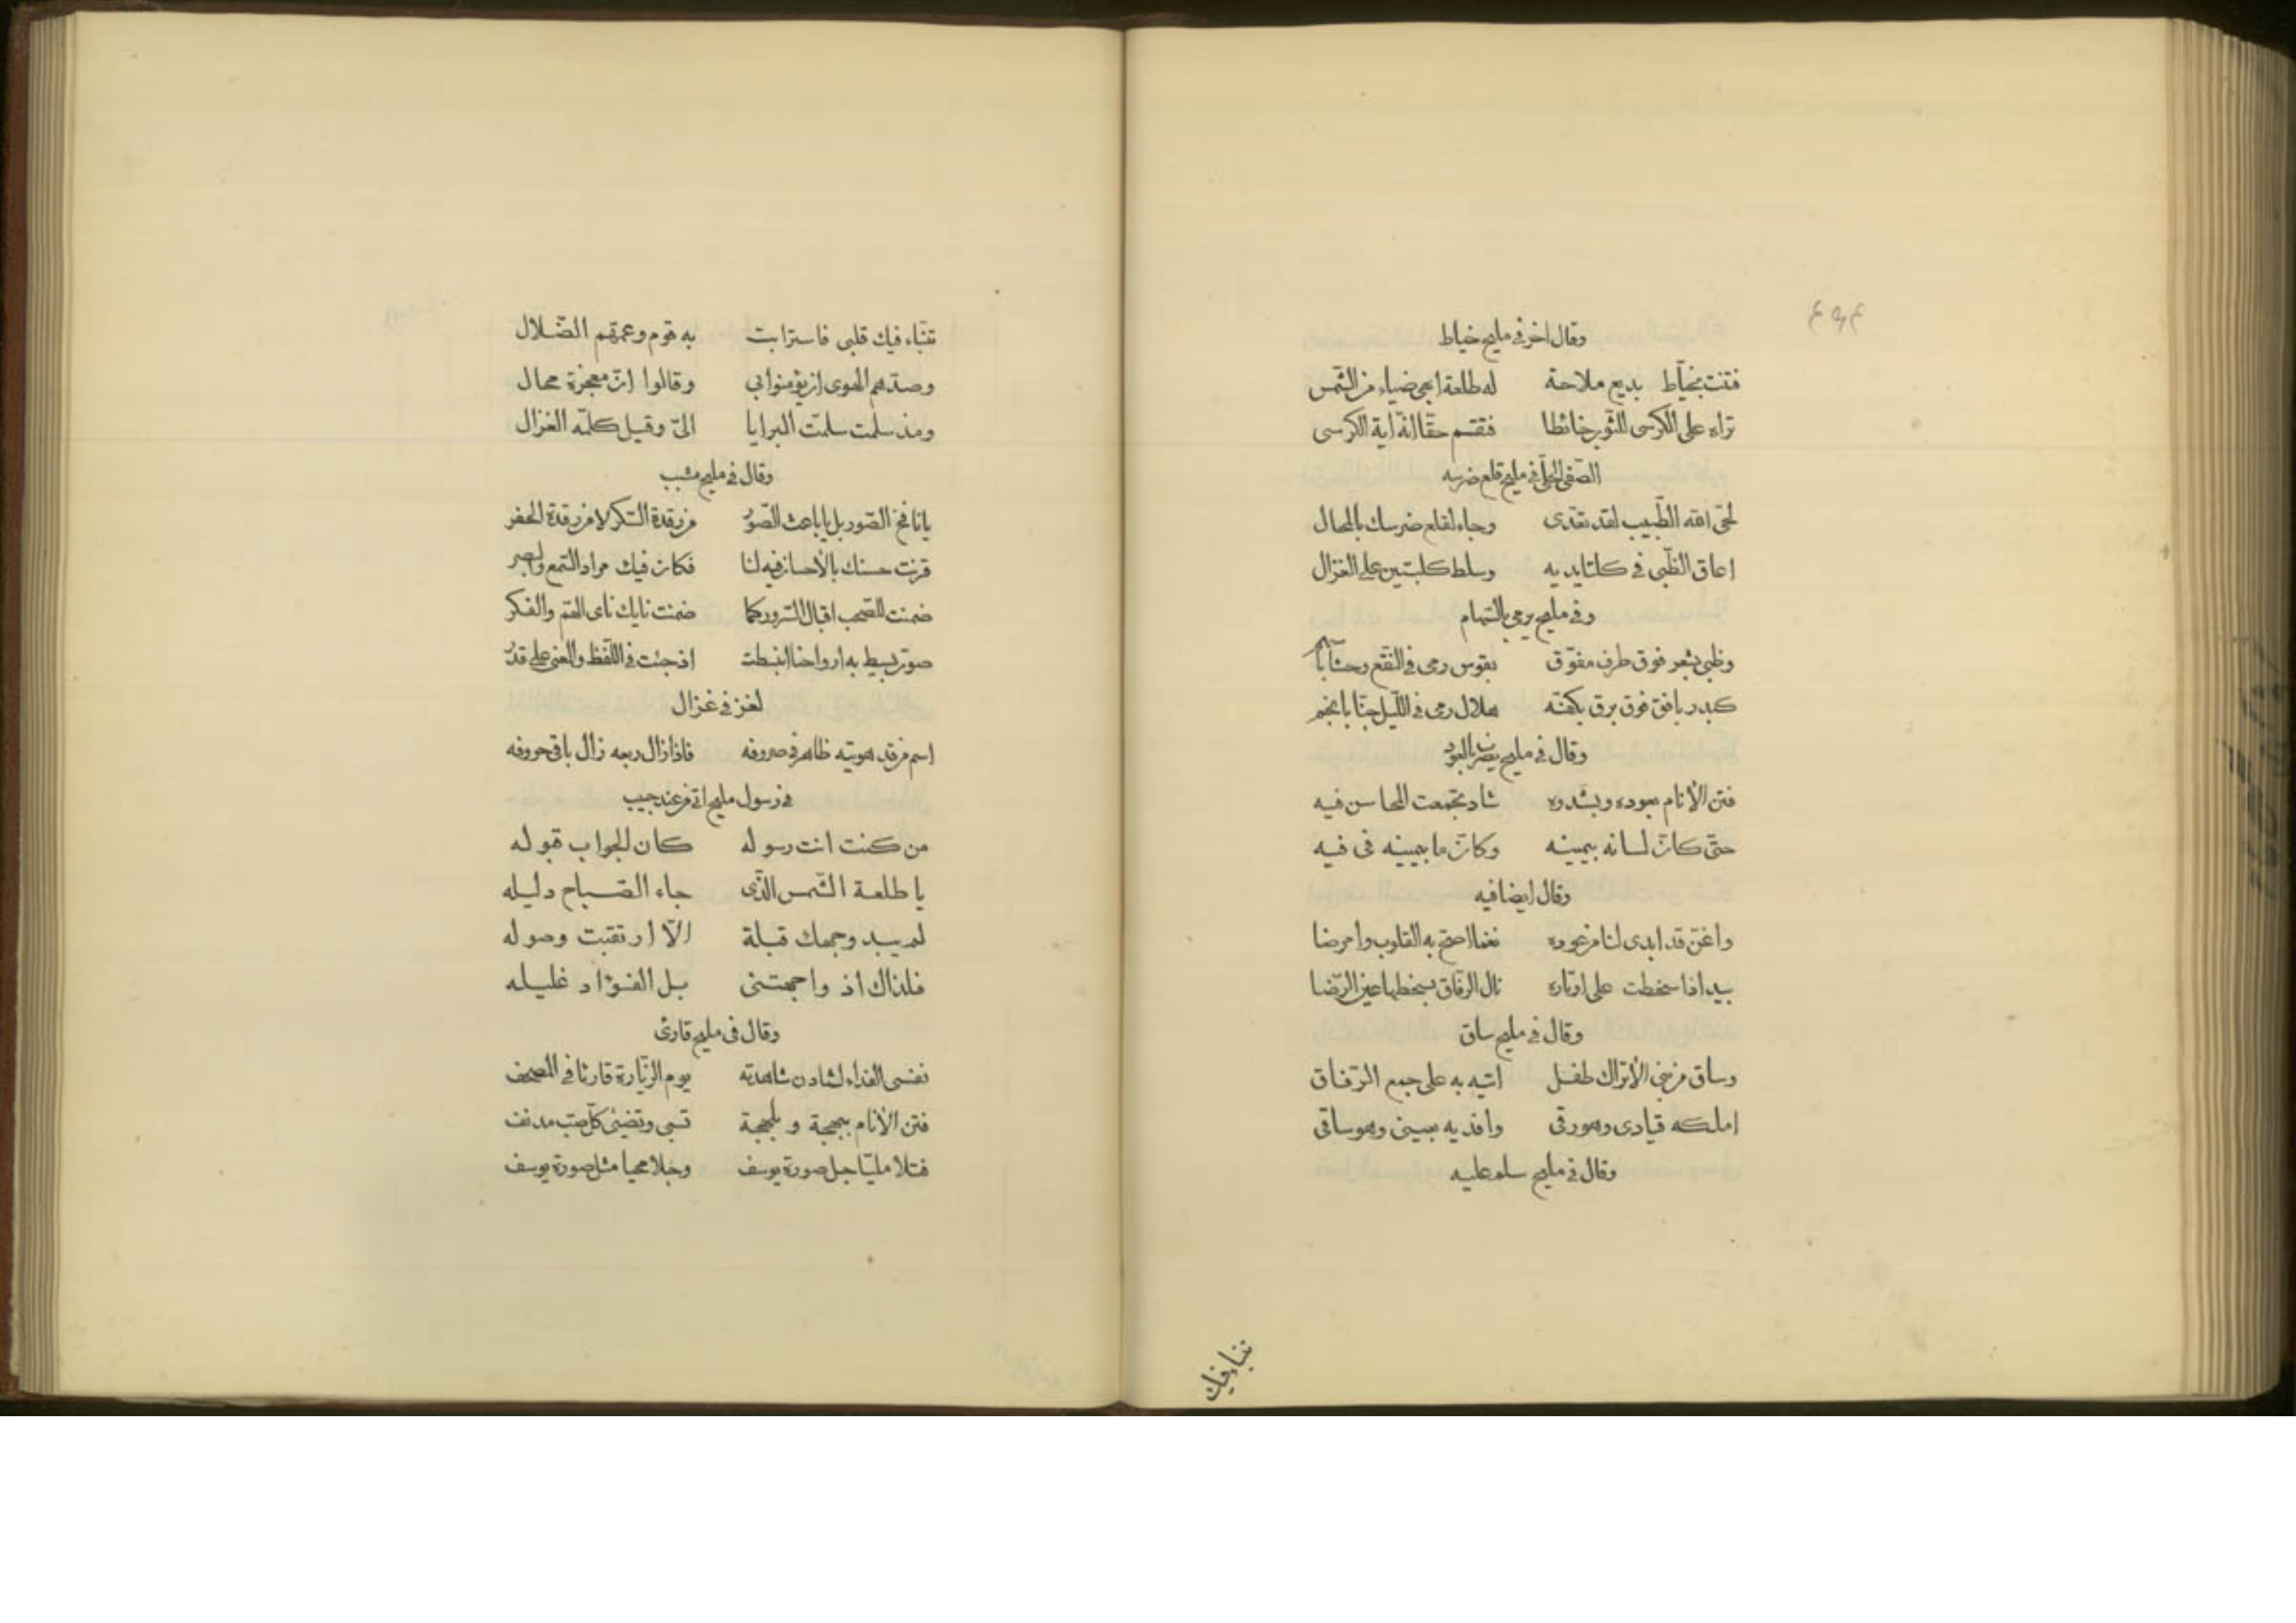 وقال اخر في مليح خياط
فتنت بخيّاط بديع ملاحة له طلعة ابهى ضياء من الشّمس
تراه على الكرسى للثّوب خائطا فنقسم حقّا انّه اية الكرسى
الصّفى الحلّى في مليح قلع ضرسه
لحى الله الطّبيب لقد تعدّى وجاء لقلع ضرسك بالمحال
اعاق الظّبى في كلتا يديه وسلط كلبتين على الغزال
وفي مليح يرمى بالسّهام
وظبى بقفر فوق طرف مفوّق بقوس رمى في النّقع وحشا باسهم
كبدر بافق فوق برق بكفّه هلال رمى في اللّيل جنّا بانجم
وقال في مليح يضرب بالعود
فتن الأنام بعوده وبشدوه شاد تجمّعت المحاسن فيه
حتّى كانّ لسانه بيمينه وكانّ ما بيمينه فى فيه
وقال ايضا فيه
واغنّ قد ابدى لنا من عوده نغما اصحّ به القلوب وامرضا
بيد اذا سخطت على اوتاره نال الرّفاق بسخطها عين الرّضا
وقال في مليح ساق
وساق من بني الأتراك طفل اتيه به على جمع الرّفاق
املكه قيادى وهو رقى وافديه بعينى وهو ساقى
وقال في مليح سلم عليه
تنبّاء فيك
تنبّاء فيك قلبى فاسترابت به قوم وعمّتهم الضّلال
وصدّهم الهوى ان يؤمنوا بي وقالوا انّ معجزة محال
ومذ سلّمت سلمت البرايا الىّ وقيل كلّمه الغزال
وقال في مليح مشبب
يا نافخ الصّور بل يا باعث الصّور من رقدة السّكر لا من رقدة الحفر
قرنت حسنك بالأحسان فيه لنا فكان فيك مراد السّمع والبصر
ضمنت للصّحب اقبال السّرور كما ضمنت نايك ناى الهمّ والفكر
صوت بسيط به ارواحنا انبسطت اذ جئت في اللّفظ والمعنى على قدر
لغز في غزال
اسم من قد هويته ظاهر في صروفه فاذا زال ربعه زال باقى حروفه
في رسول مليح اتى من عند حبيب
من كنت انت رسوله كان الجواب قبوله
يا طلعة الشّمس الّذى جاء الصّباح دليله
لم يبد وجهك قبلة الّا ارتقبت وصوله
فلذاك اذ واجهتنى بل الفؤاد غليله
وقال فى مليح قارئ
نفسى الفداء لشادن شاهدته يوم الزّيارة قارئا في المصحف
فتن الأنام ببهجة و بلهجة تسبى وتضنى كلّ صبّ مدنف
فتلا مليّا جل صورة يوسف وجلا محيا مثل صورة يوسف